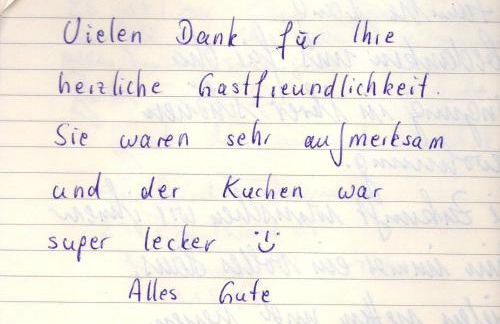 Vielen Dank für Ihre
herzliche Gastfreundlichkeit.
Sie waren sehr aufmerksam
und der Kuchen war
super lecker :)
Alles Gute